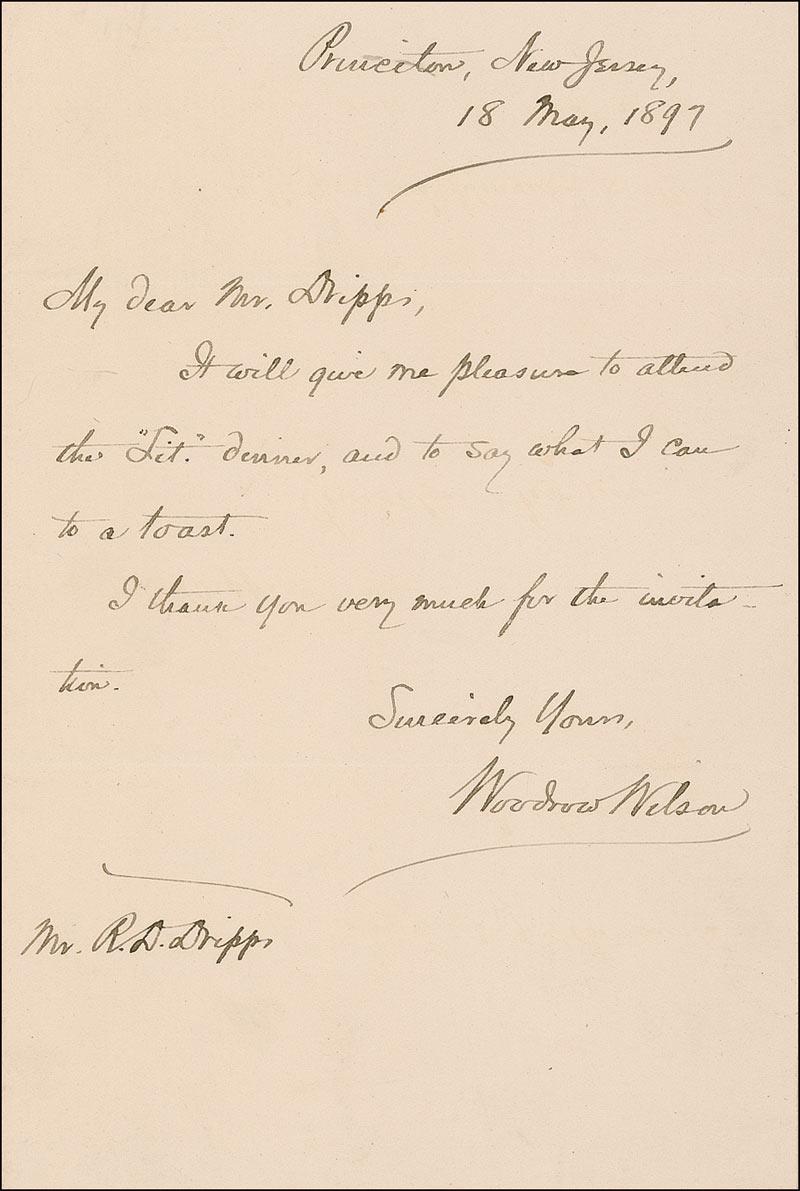 Princeton, New Jersey,
18 May, 1897
My dear Mr. Dripps,
It will give me pleasure to attend
the "Lit." dinner, and to say what I can
to a toast.
I thank you very much for the invita-
tion.
Sincerely Yours,
Woodrow Wilson
Mr. R. D. Dripps